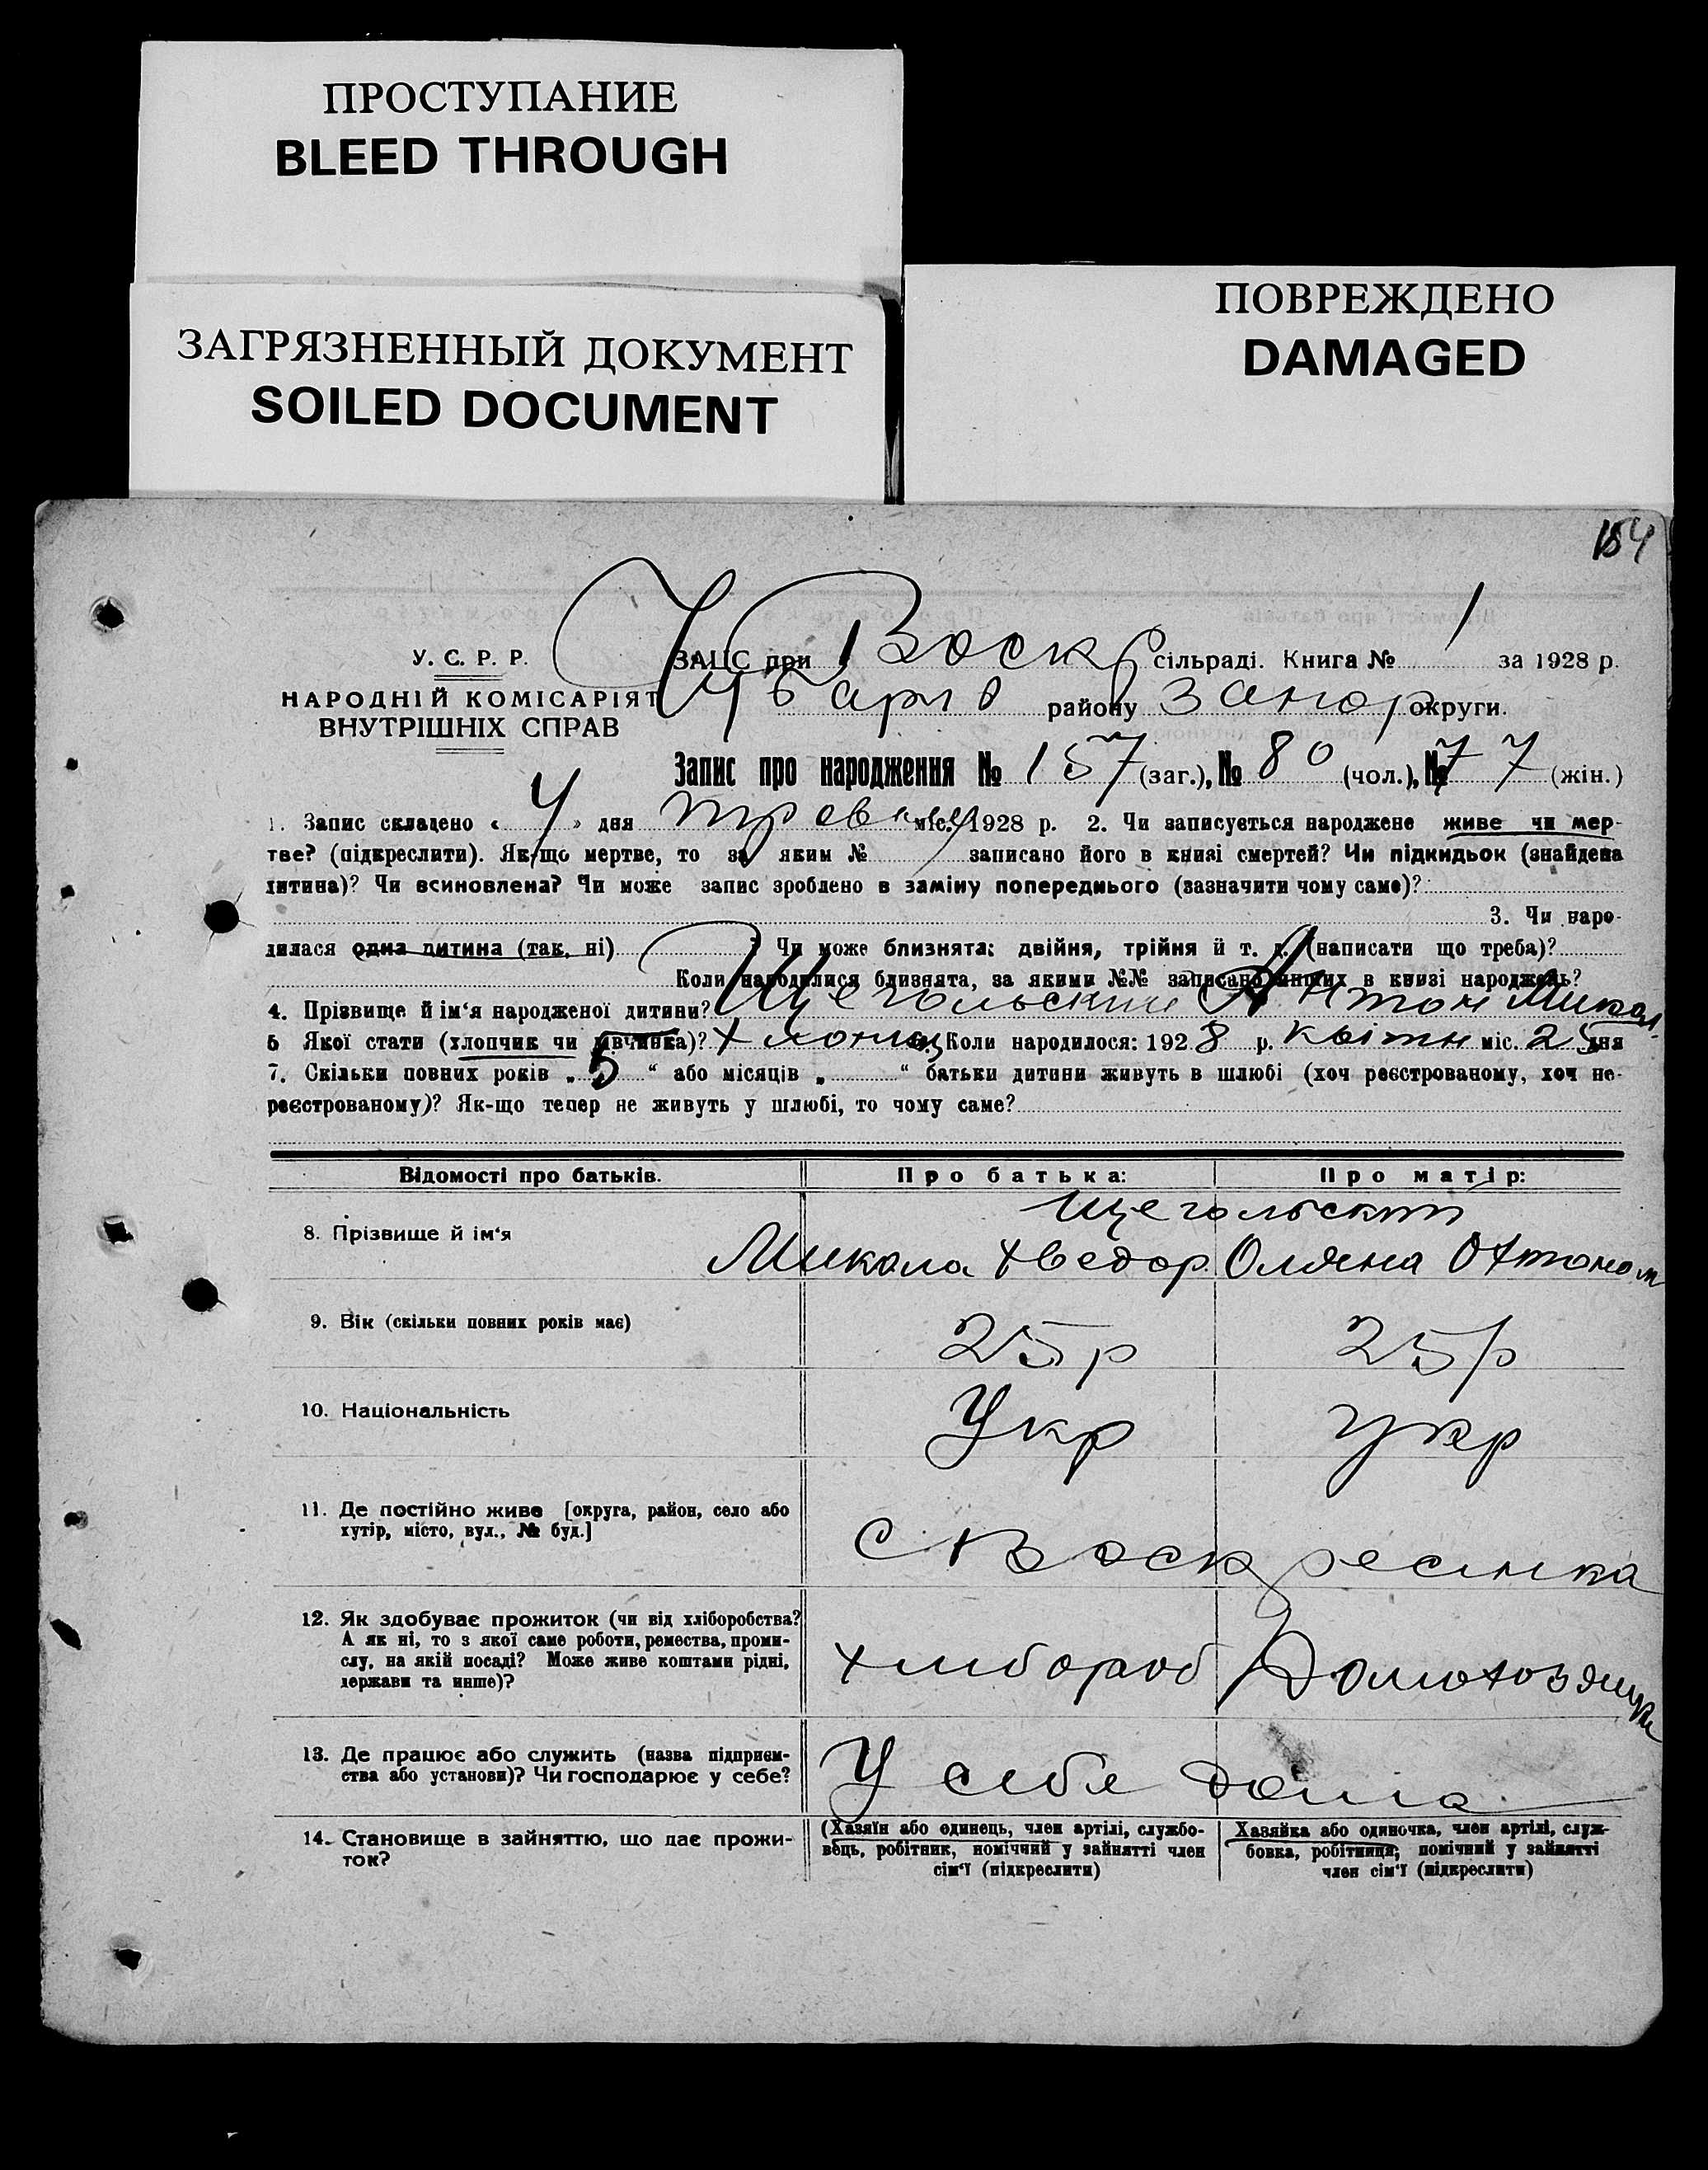 ПРОСТУПАНИЕ
BLEED THROUGH
ЗАГРЯЗНЕННЫЙ ДОКУМЕНТ
SOILED DOCUMENT
ПОВРЕЖДЕНО
DAMAGED
154
У. С. Р. Р.
НАРОДНІЙ КОМІСАРІЯТ
ВНУТРІШНІХ СПРАВ
ЗАЦС при Воскр сільраді. Книга № 1 за 1928 р.
району Запор округи.
Запис про народження № 157 (заг.), № 80 (чол.), № 77 (жін.)
1. Запис складено « 4 » дня травня міс. 1928 р. 2. Чи записується народжене живе чи мер-
тве? (підкреслити). Як-що мертве, то за яким № записано його в книзі смертей? Чи підкидьок (знайдена
дитина)? Чи всиновлена? Чи може запис зроблено в заміну попереднього (зазначити чому саме)?
3. Чи наро-
дилася одна дитина (так, ні) ? Чи може близнята: двійня, трійня й т. д. (написати що треба)?
Коли народилися близнята, за якими №№ записано инших в книзі народжень?
4. Прізвище й ім'я народженої дитини? Щегольский Антон Микол
5 Якої стати (хлопчик чи дівчинка)? хлопец Коли народилося: 1928 р. квітн міс. 25 дня
7. Скільки повних років „ 5 “ або місяців „ “ батьки дитини живуть в шлюбі (хоч реєстрованому, хоч не-
реєстрованому)? Як-що тепер не живуть у шлюбі, то чому саме?
Відомості про батьків. Про батька: Про матір:
Щегольскі
8. Прізвище й ім'я Микола Хведор Оляна
9. Вік (скільки повних років має) 25 р 25 р
10. Національність Укр Укр
11. Де постійно живе [округа, район, село або
хутір, місто, вул., № буд.]
с Воскресінка
12. Як здобуває прожиток (чи від хліборобства?
А як ні, то з якої саме роботи, ремества, проми-
слу, на якій посаді? Може живе коштами рідні,
держави та инше)?
хлибороб
13. Де працює або служить (назва підприєм-
ства або установи)? Чи господарює у себе?
У себя дома
14. Становище в зайняттю, що дає прожи-
ток?
(Хазяїн або одинець, член артілі, службо-
вець, робітник, помічний у зайнятті член
сім'ї (підкреслити)
Хазяйка або одиночка, член артілі, служ-
бовка, робітниця, помічний у зайнятті
член сім'ї (підкреслити)